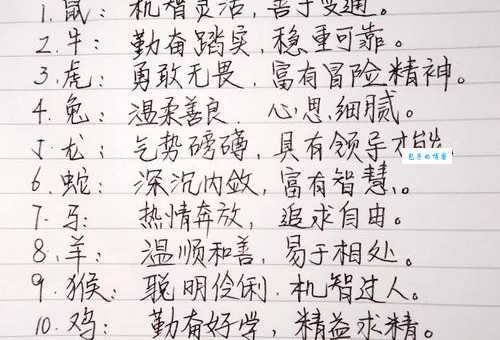 1.鼠：机智灵活，善于变通。
2.牛：勤奋踏实，稳重可靠。
3.虎：勇敢无畏，富有冒险精神。
4.兔：温柔善良，心思细腻。
5.龙：气势磅礴，具有领导才能
6.蛇：深沉内敛，富有智慧。
7.马：热情奔放，追求自由。
8.羊：温顺和善，易于相处。
9.猴：聪明伶俐，机智过人。
10.鸡：勤奋好学，精益求精。